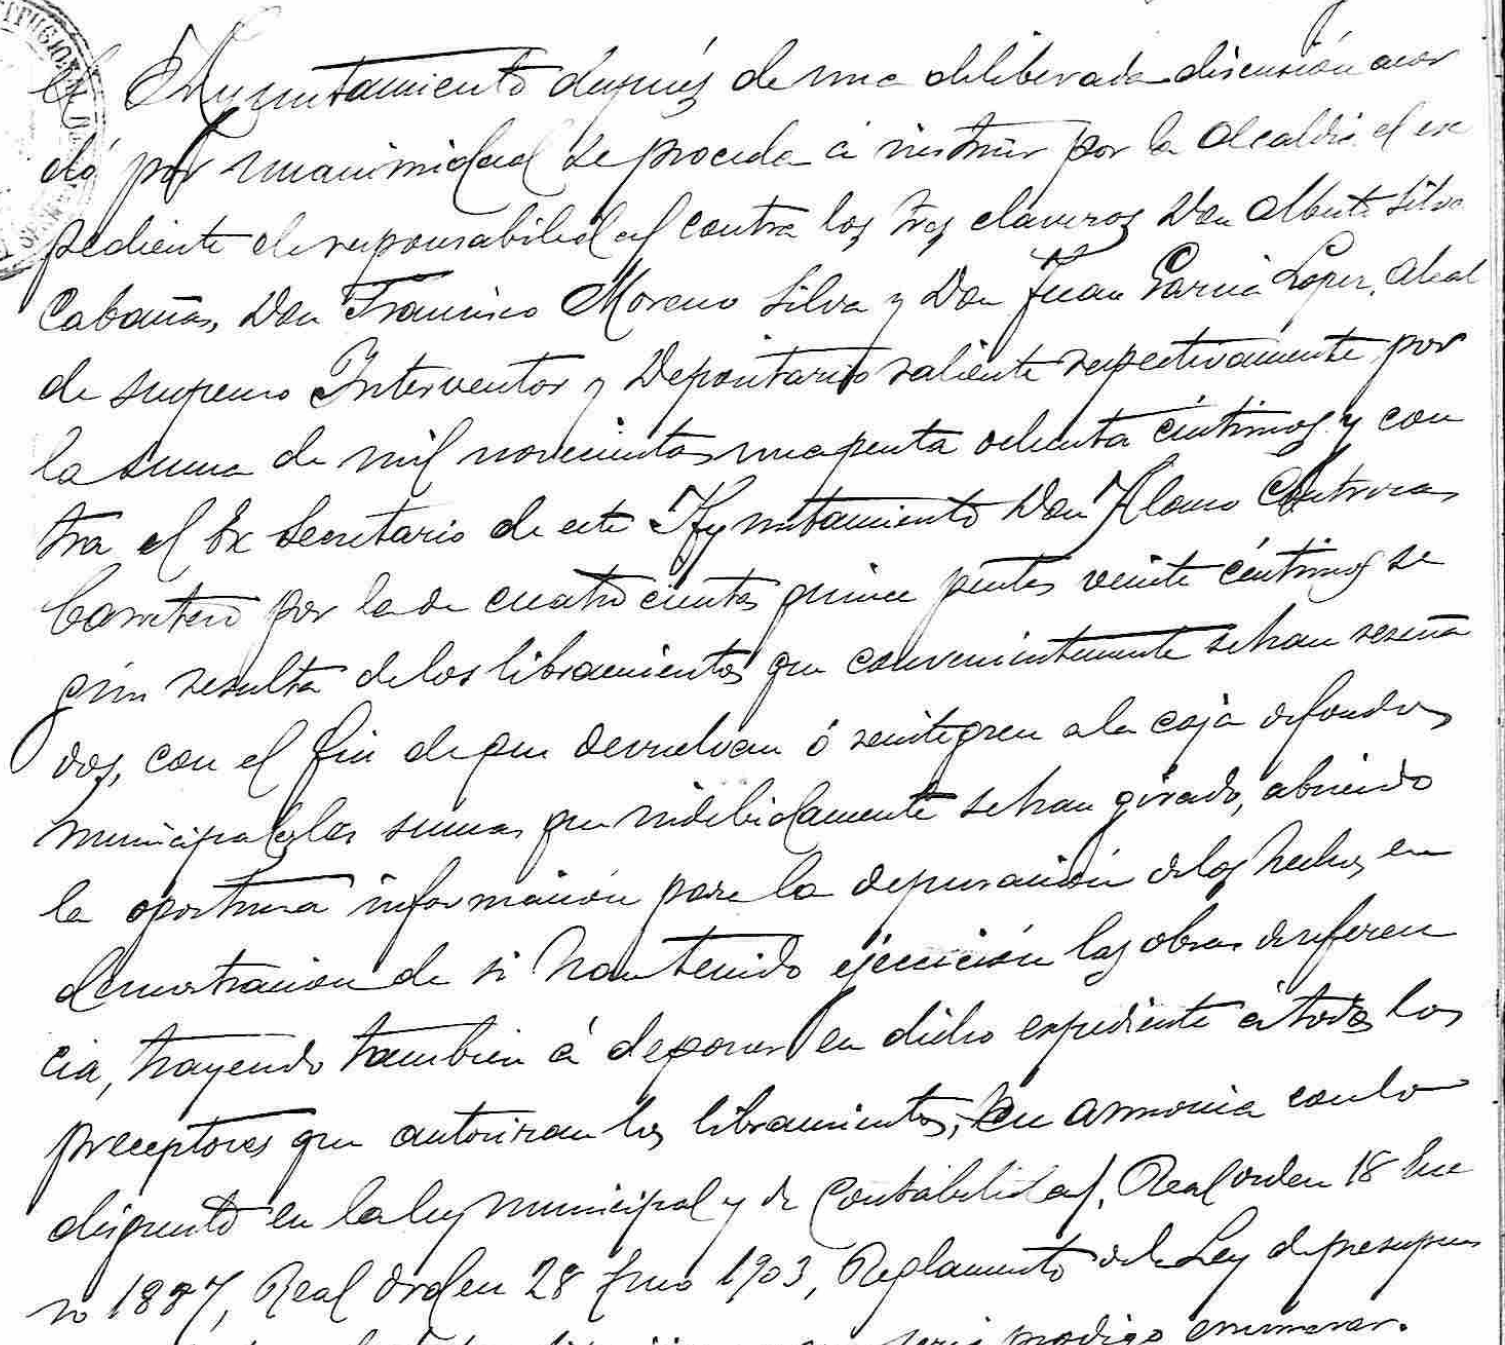 El Ayuntamiento después de una deliberada discusión acor
dó por unanimidad se proceda á instruir por la Alcaldia el ex
pediente de responsabilidad contra los tres claveros Don Alberto Silva
Cabañas, Don Francisco Moreno Silva y Don Juan Garcia Lopez, Alcal
de suspenso Interventor y Depositario saliente respectivamente, por
la suma de mil novecientas una peseta ochenta céntimos y con
tra el Ex Secretario de este Ayuntamiento Don Alonso Contreras
Carretero por la de cuatrocientas quince pesetas veinte céntimos se
gún resulta de los libramientos que convenientemente se han reseña
dos, con el fin de que devuelvan ó reintegren a la caja de fondos
municipales las sumas que indebidamente se han girado, abriendo
la oportuna información para la depuración de los hechos, en
demostración de si han tenido ejecución las obras de referen
cia, trayendo tambien á deponer en dicho expediente á todos los
preceptores que autorizan los libramientos, en armonia con lo
dispuesto en la ley municipal y de Contabilidad, Real orden 18 Ene
ro 1887, Real orden 28 1903, Reglamento de la Ley de presupues
seria prodigo enumerar.